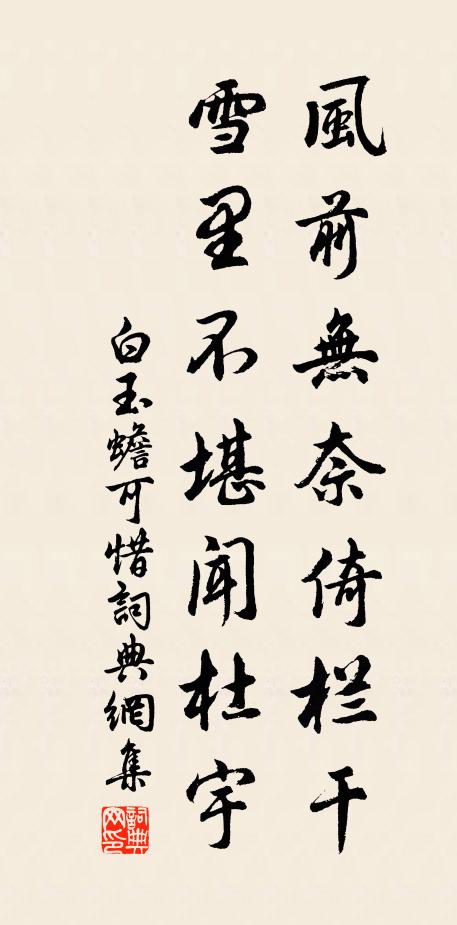 風前無奈倚栏干
雪里不堪闻杜宇
白玉蟾可惜詞典網集
詞典网印